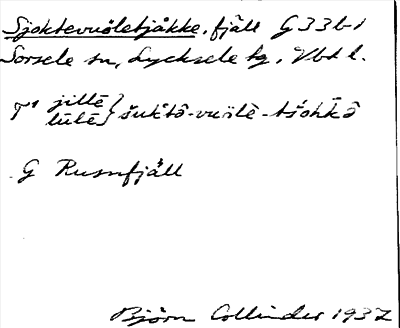 Sjoktevuöletjåkke, fjäll G 33b-1
Sorsele sn, Lycksele tg, Vbt l.
T¹ jillē } šuktȱ-vuölē-tšŏhkȱ
lulē
G Rusnfjäll
Björn Collinder 1937